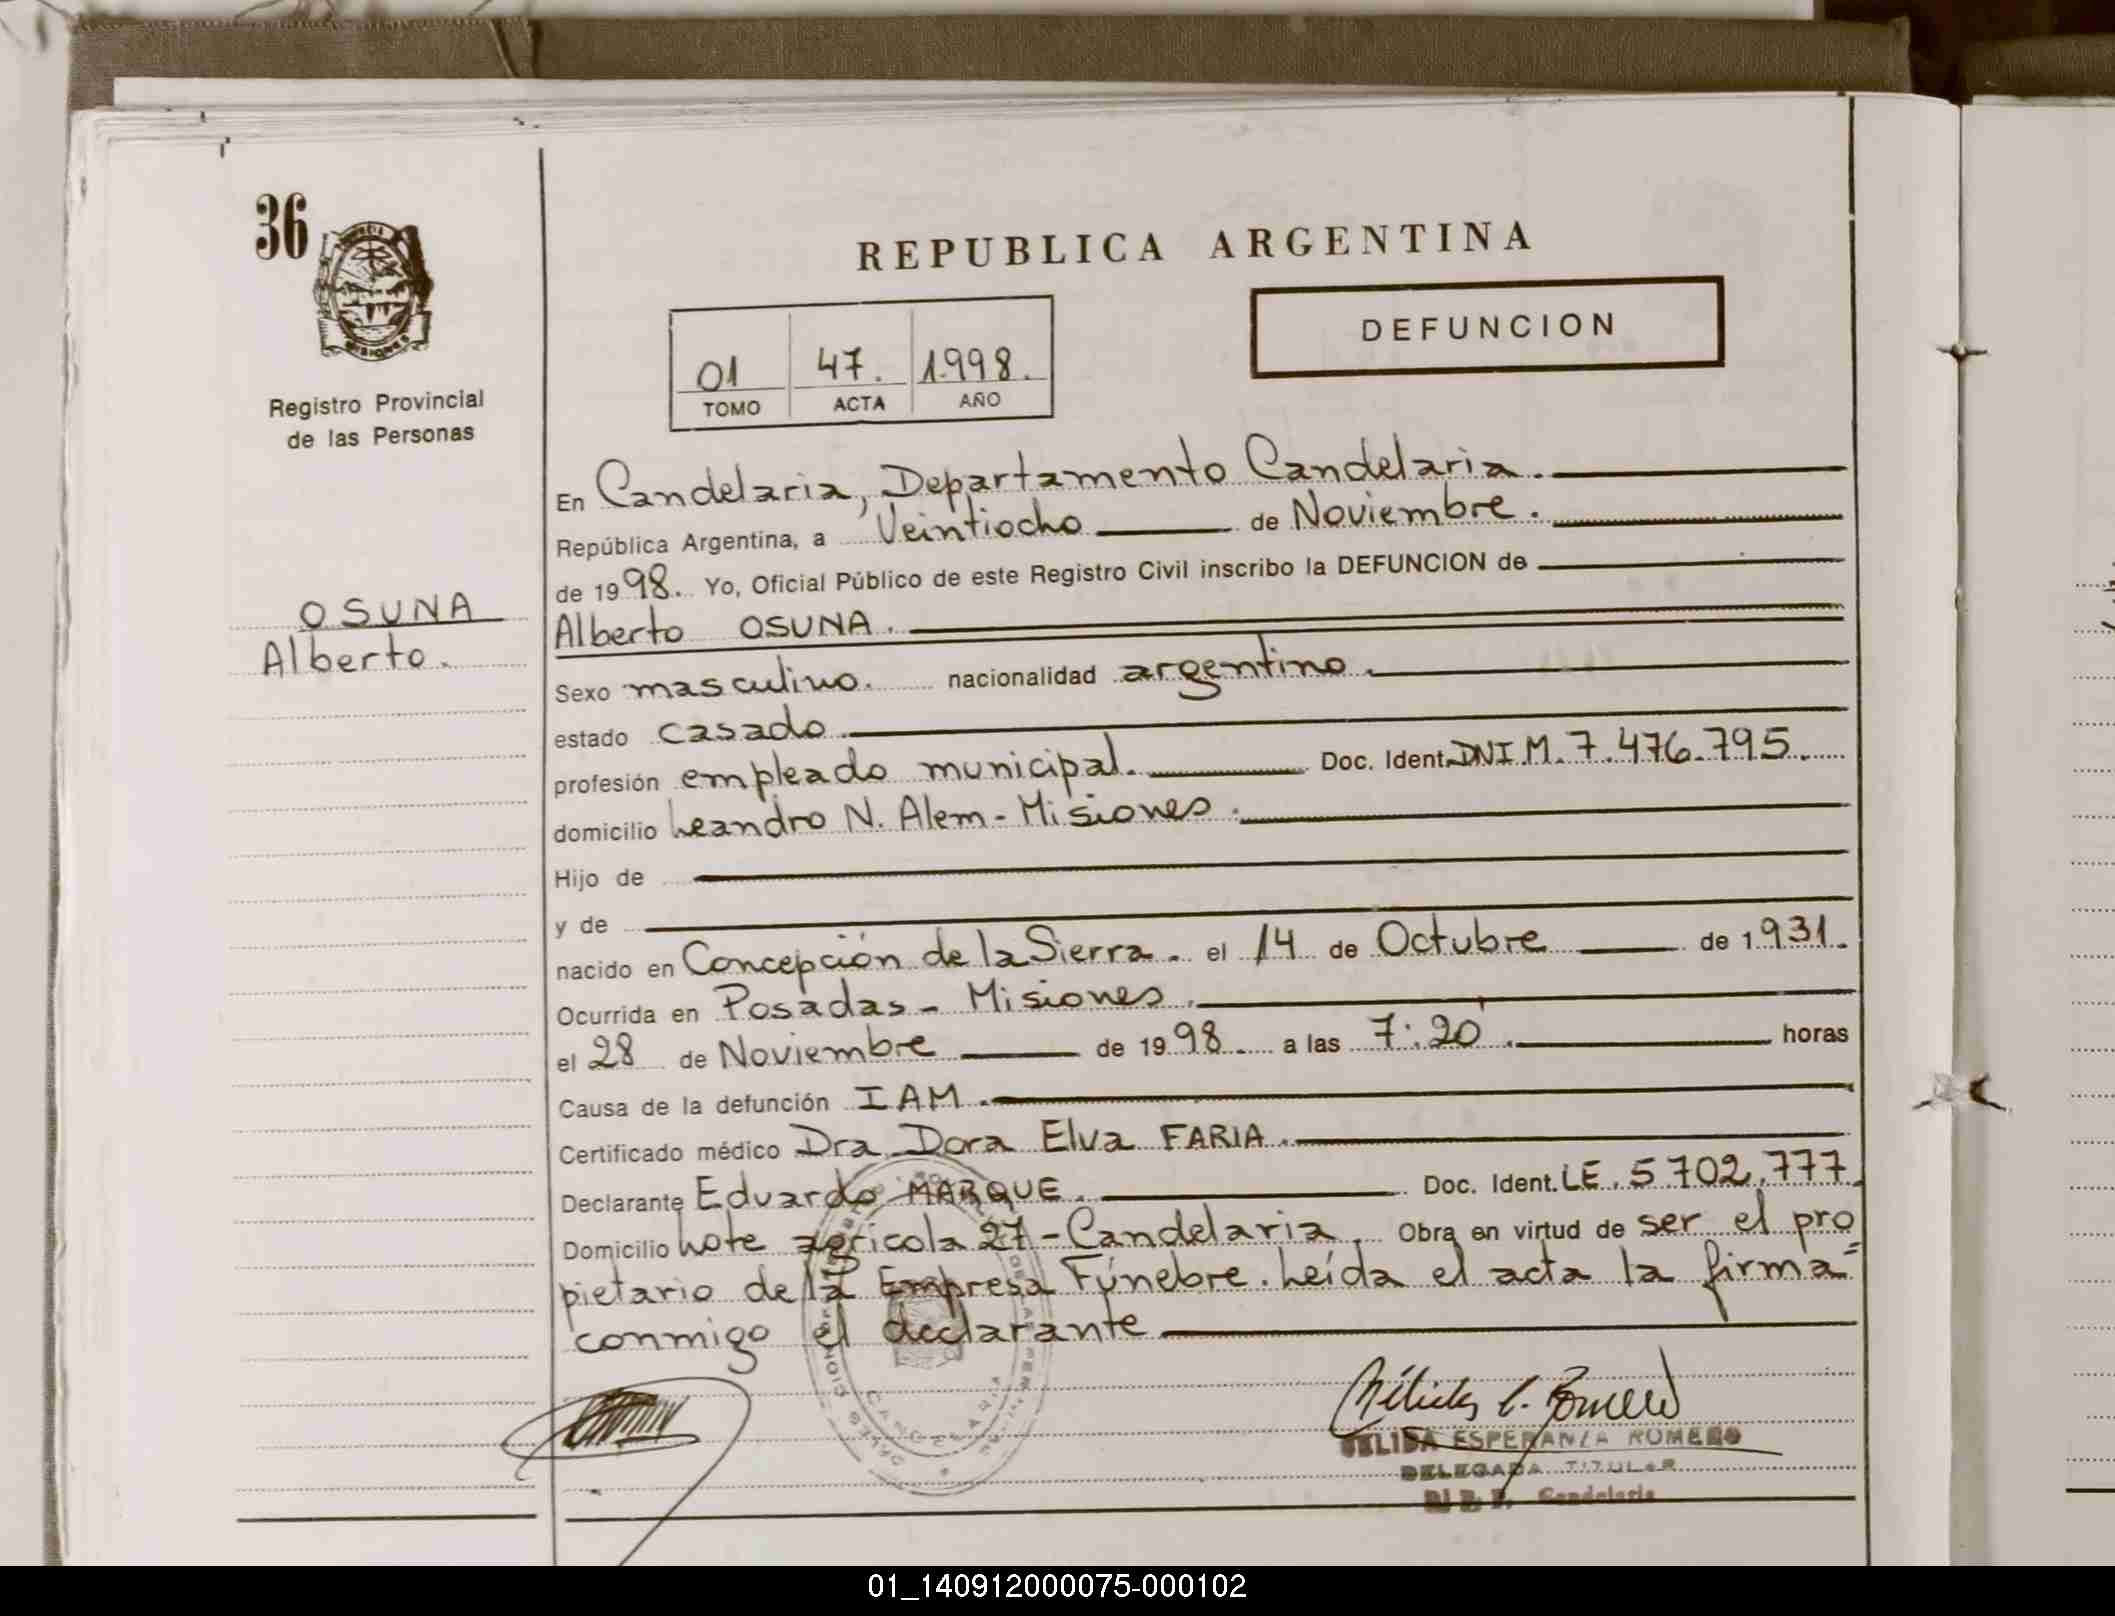 36
MISIONES
Registro Provincial
de las Personas
OSUNA
Alberto.
REPUBLICA ARGENTINA
DEFUNCION
01 47. 1.998.
TOMO ACTA AÑO
En Candelaria, Departamento Candelaria.
República Argentina, a Veintiocho de Noviembre.
de 1998. Yo, Oficial Público de este Registro Civil inscribo la DEFUNCION de
Alberto OSUNA.
Sexo masculino. nacionalidad argentino.
estado casado
profesión empleado municipal. Doc. Ident. DNI.M. 7.476.795.
domicilio Leandro N. Alem - Misiones.
Hijo de
y de
nacido en Concepción de la Sierra. el 14 de Octubre de 1931.
Ocurrida en Posadas - Misiones.
el 28 de Noviembre de 1998. a las 7:20'. horas
Causa de la defunción IAM.
Certificado médico Dra. Dora Elva FARIA.
Declarante Eduardo MARQUE. Doc. Ident. LE. 5.702.777.
Domicilio Lote agrícola 27 - Candelaria. Obra en virtud de ser el pro
pietario de la Empresa Fúnebre. Leída el acta la firma=
conmigo el declarante
CANDELARIA
ESPERANZA ROMERO
DELEGADA TITULAR
Candelaria
01_140912000075-000102